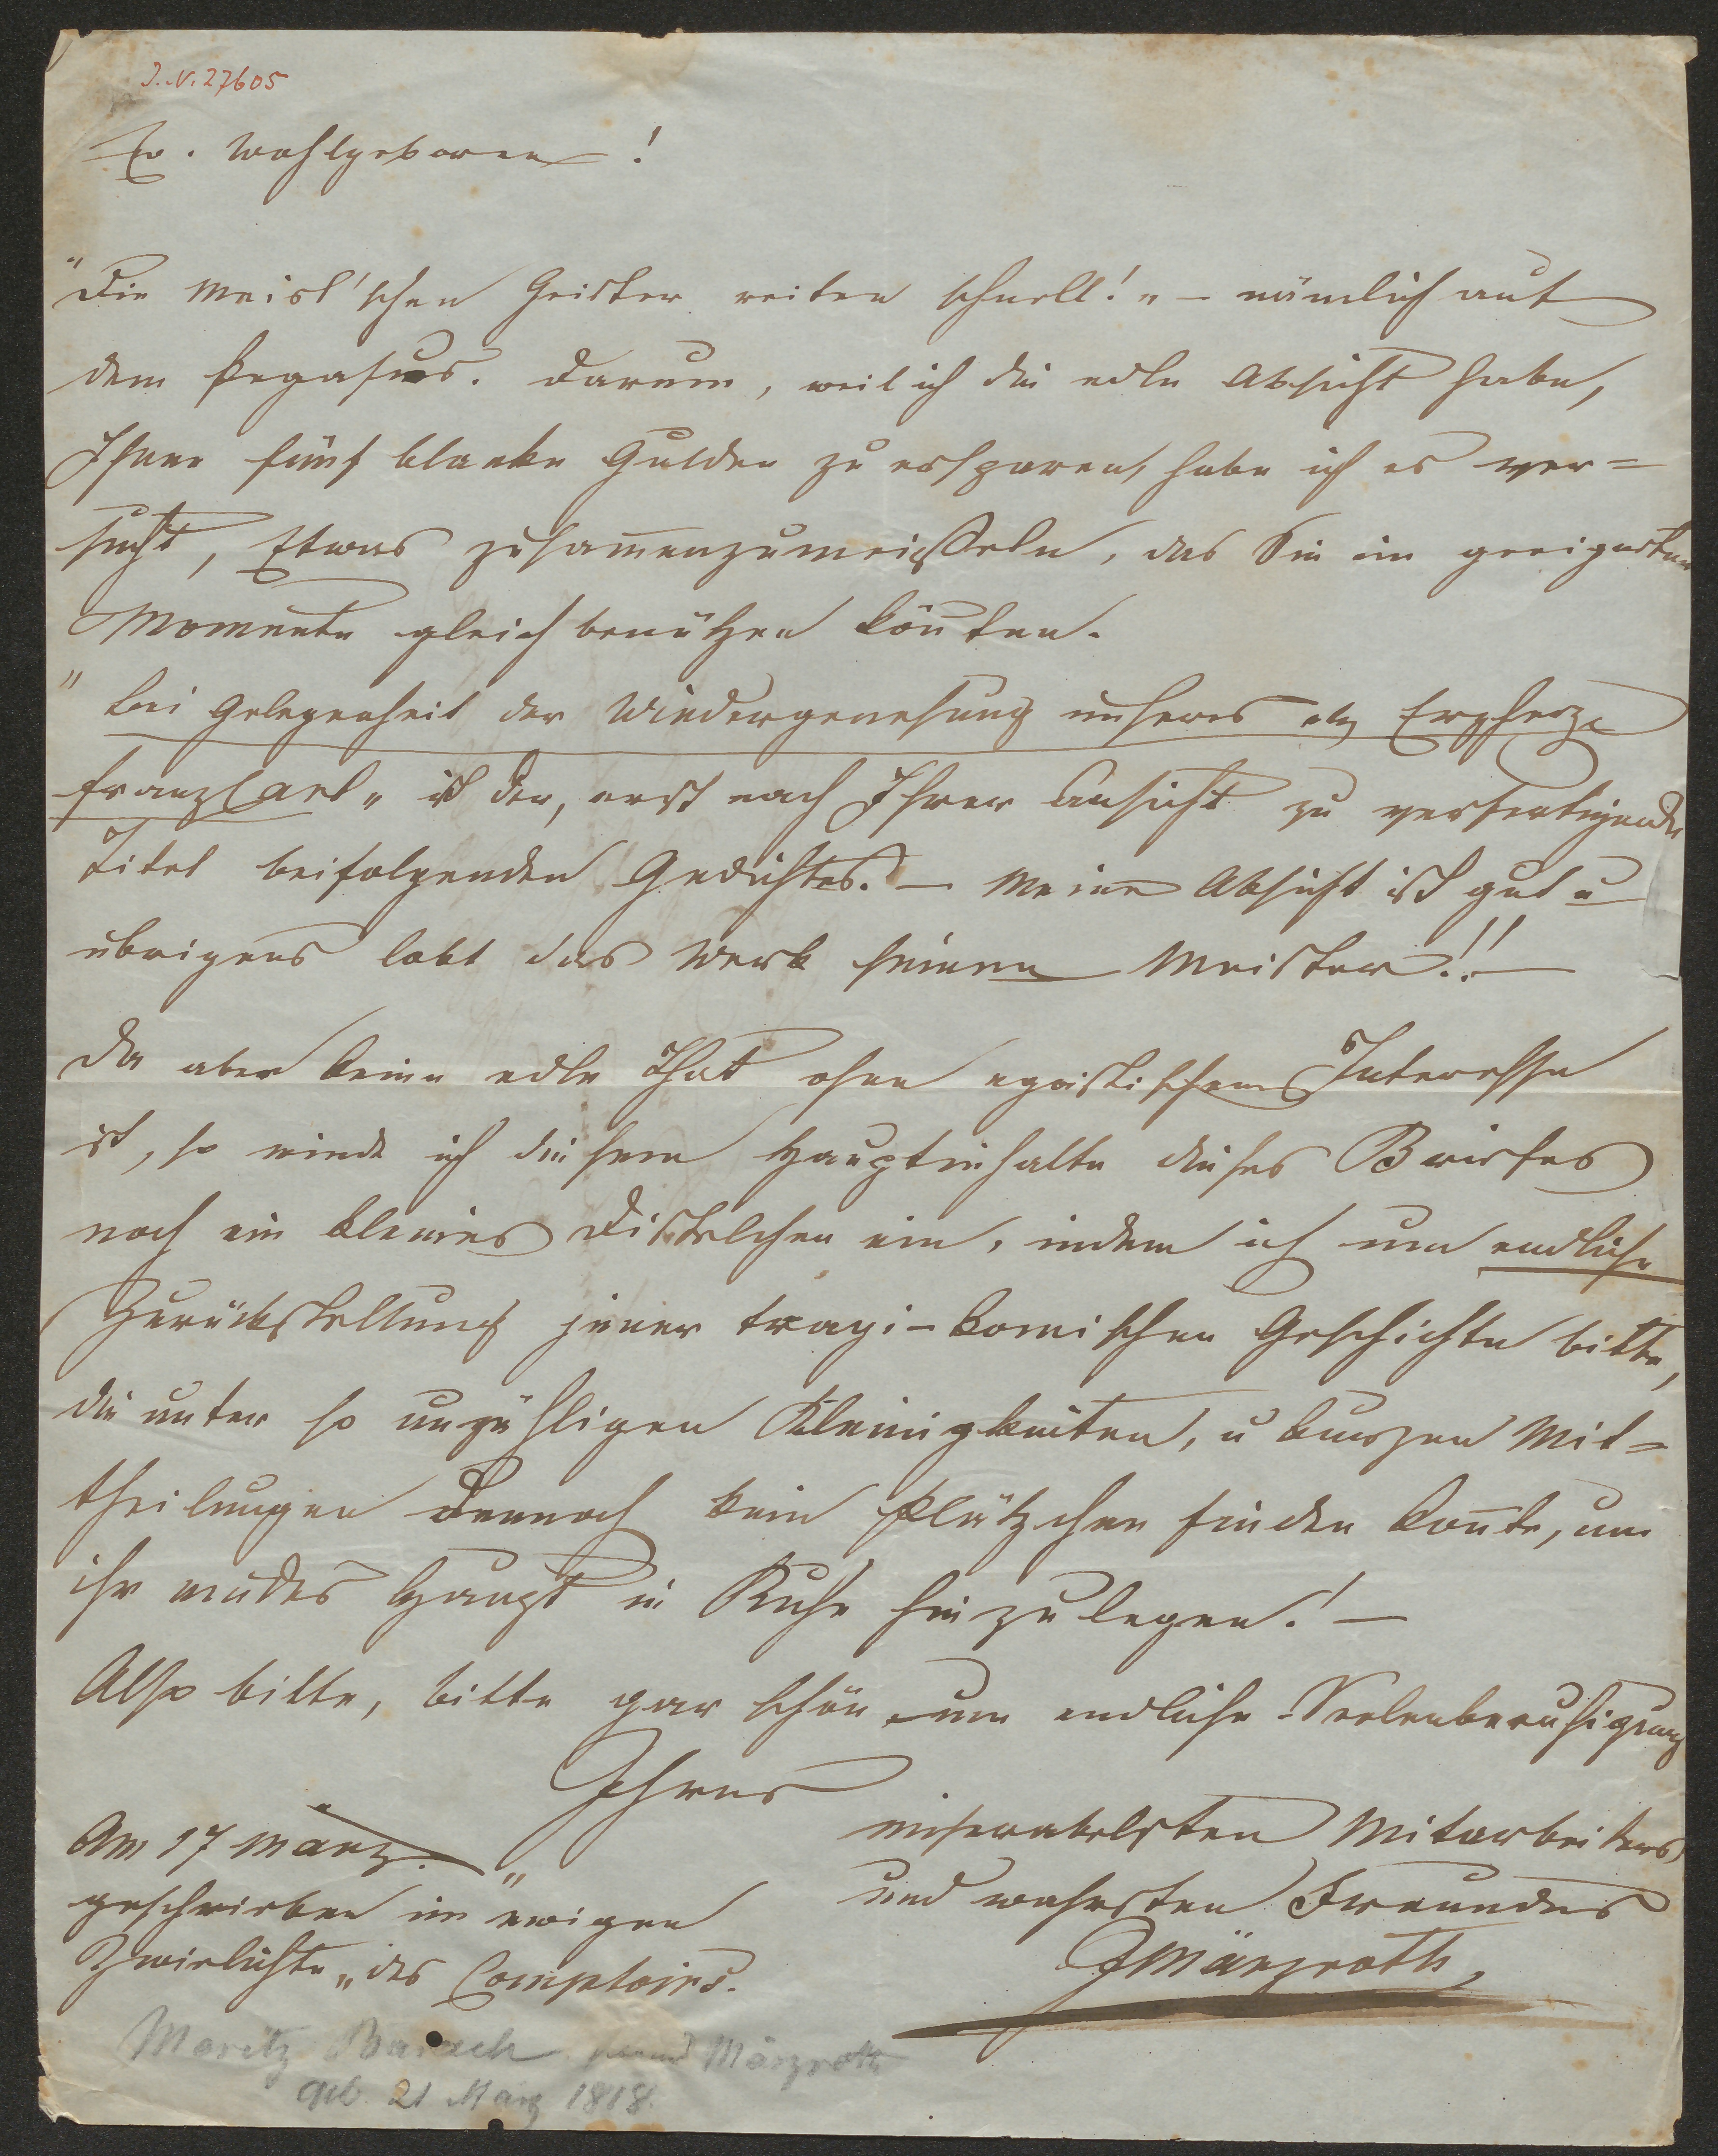 J.N. 27605
Ew. Wohlgeboren!
"Die Meisl'schen Geister reiten schnell!" – nämlich auf
dem Pegasus. Darum, weil ich die edle Absicht habe,
Ihnen fünf blanke Gulden zu ersparen, habe ich es ver=
sucht, Etwas zusam̄enzumeißeln, das Sie im geeigneten
Momente gleich benützen kön̄ten.
"Bei Gelegenheit der Wiedergenesung unseres Erzherz.
Franz Carl" ist der, erst nach Ihrer Ansicht zu verfertigende
Titel beifolgenden Gedichtes. – Meine Absicht ist gut u
übrigens lobt das Werk seinen Meister!! –
Da aber keine edle That ohne egoistischem Interesse
ist, so winde ich diesem Hauptinhalte dieses Briefes
noch ein kleines Distelchen ein, indem ich um endliche
Zurückstellung jener tragi-komischen Geschichte bitte,
die unter so unzähligen Kleinigkeiten, u kurzen Mit=
theilungen dennoch kein Plätzchen finden kon̄te, um
ihr müdes Haupt in Ruhe hinzulegen! –
Also bitte, bitte gar schön um endliche Seelenberuhigung
Ihres
miserabelsten Mitarbeiters
und wahrsten Freundes
JMärzroth
Am 17 März.
geschrieben im "ewigen
Zwielichte" des Comptoirs.
Moritz Barach Märzroth
geb. 21 März 1818.